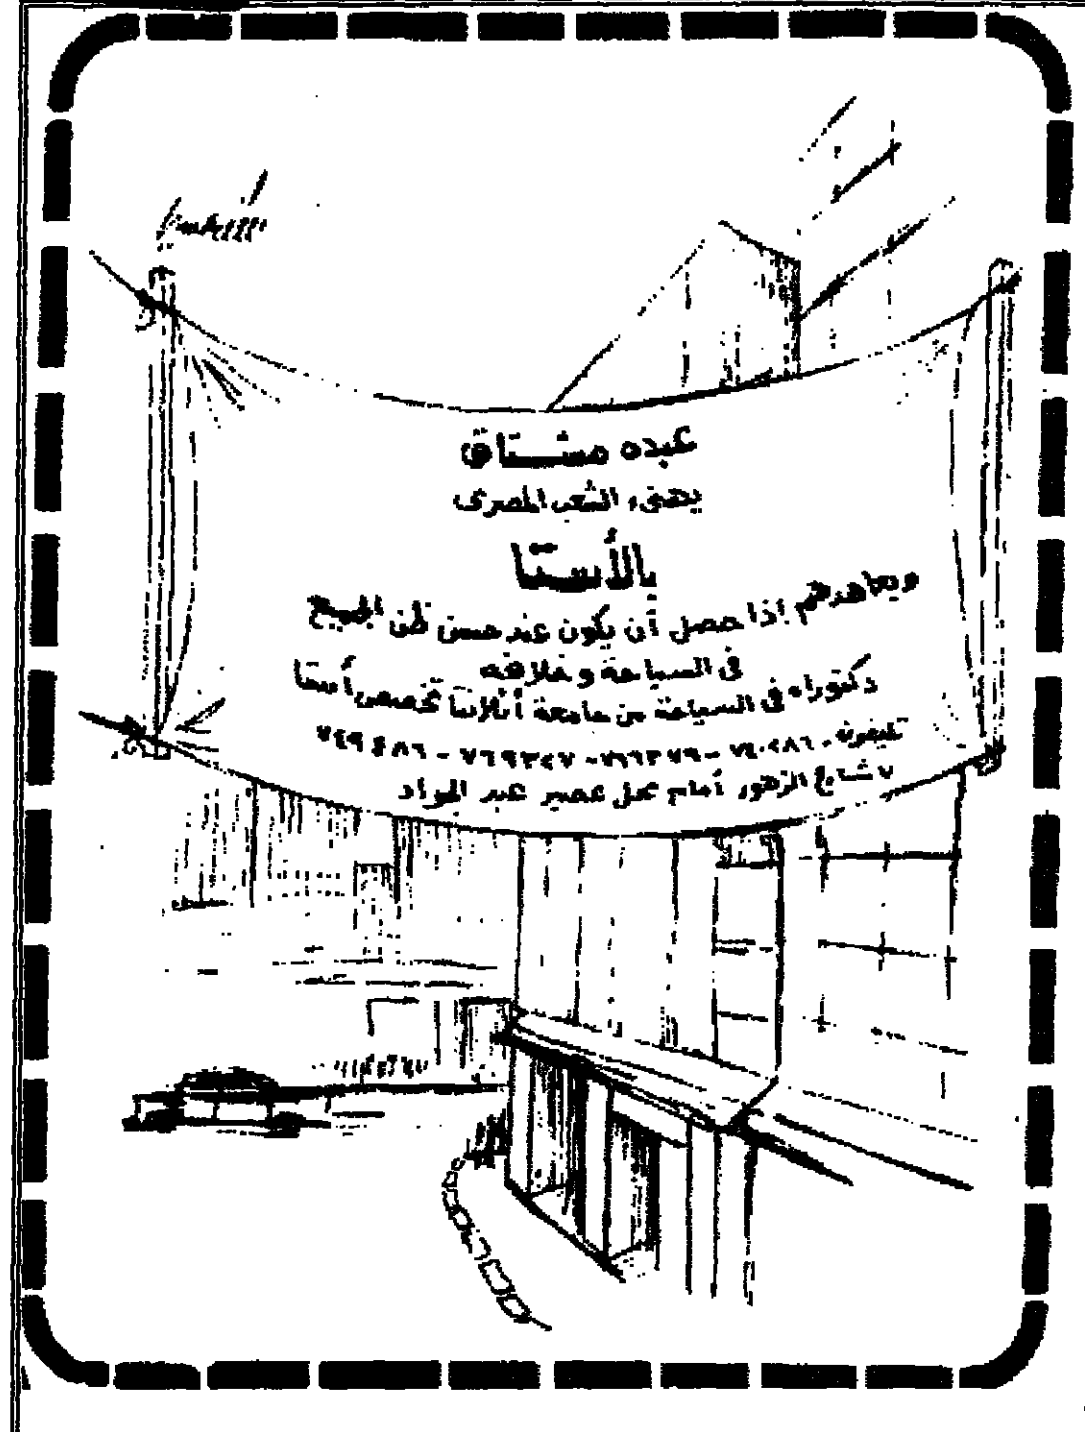 عبده مشتاق
يهنىء الشعب المصرى
بالأستا
ويعاهدهم إذا حصل أن يكون عند حسن ظن الجميع
فى السياحة وخلافه
دكتوراه فى السياحة من جامعة أتلانتا تخصص أستا
تليفون - ٧٤٠٢٨٦ - ٧٦٦٣٧٩ - ٧٦٩٣٢٧ - ٧٤٩٤٨٦
٧ شارع الزهور أمام محل عصير عبد الجواد